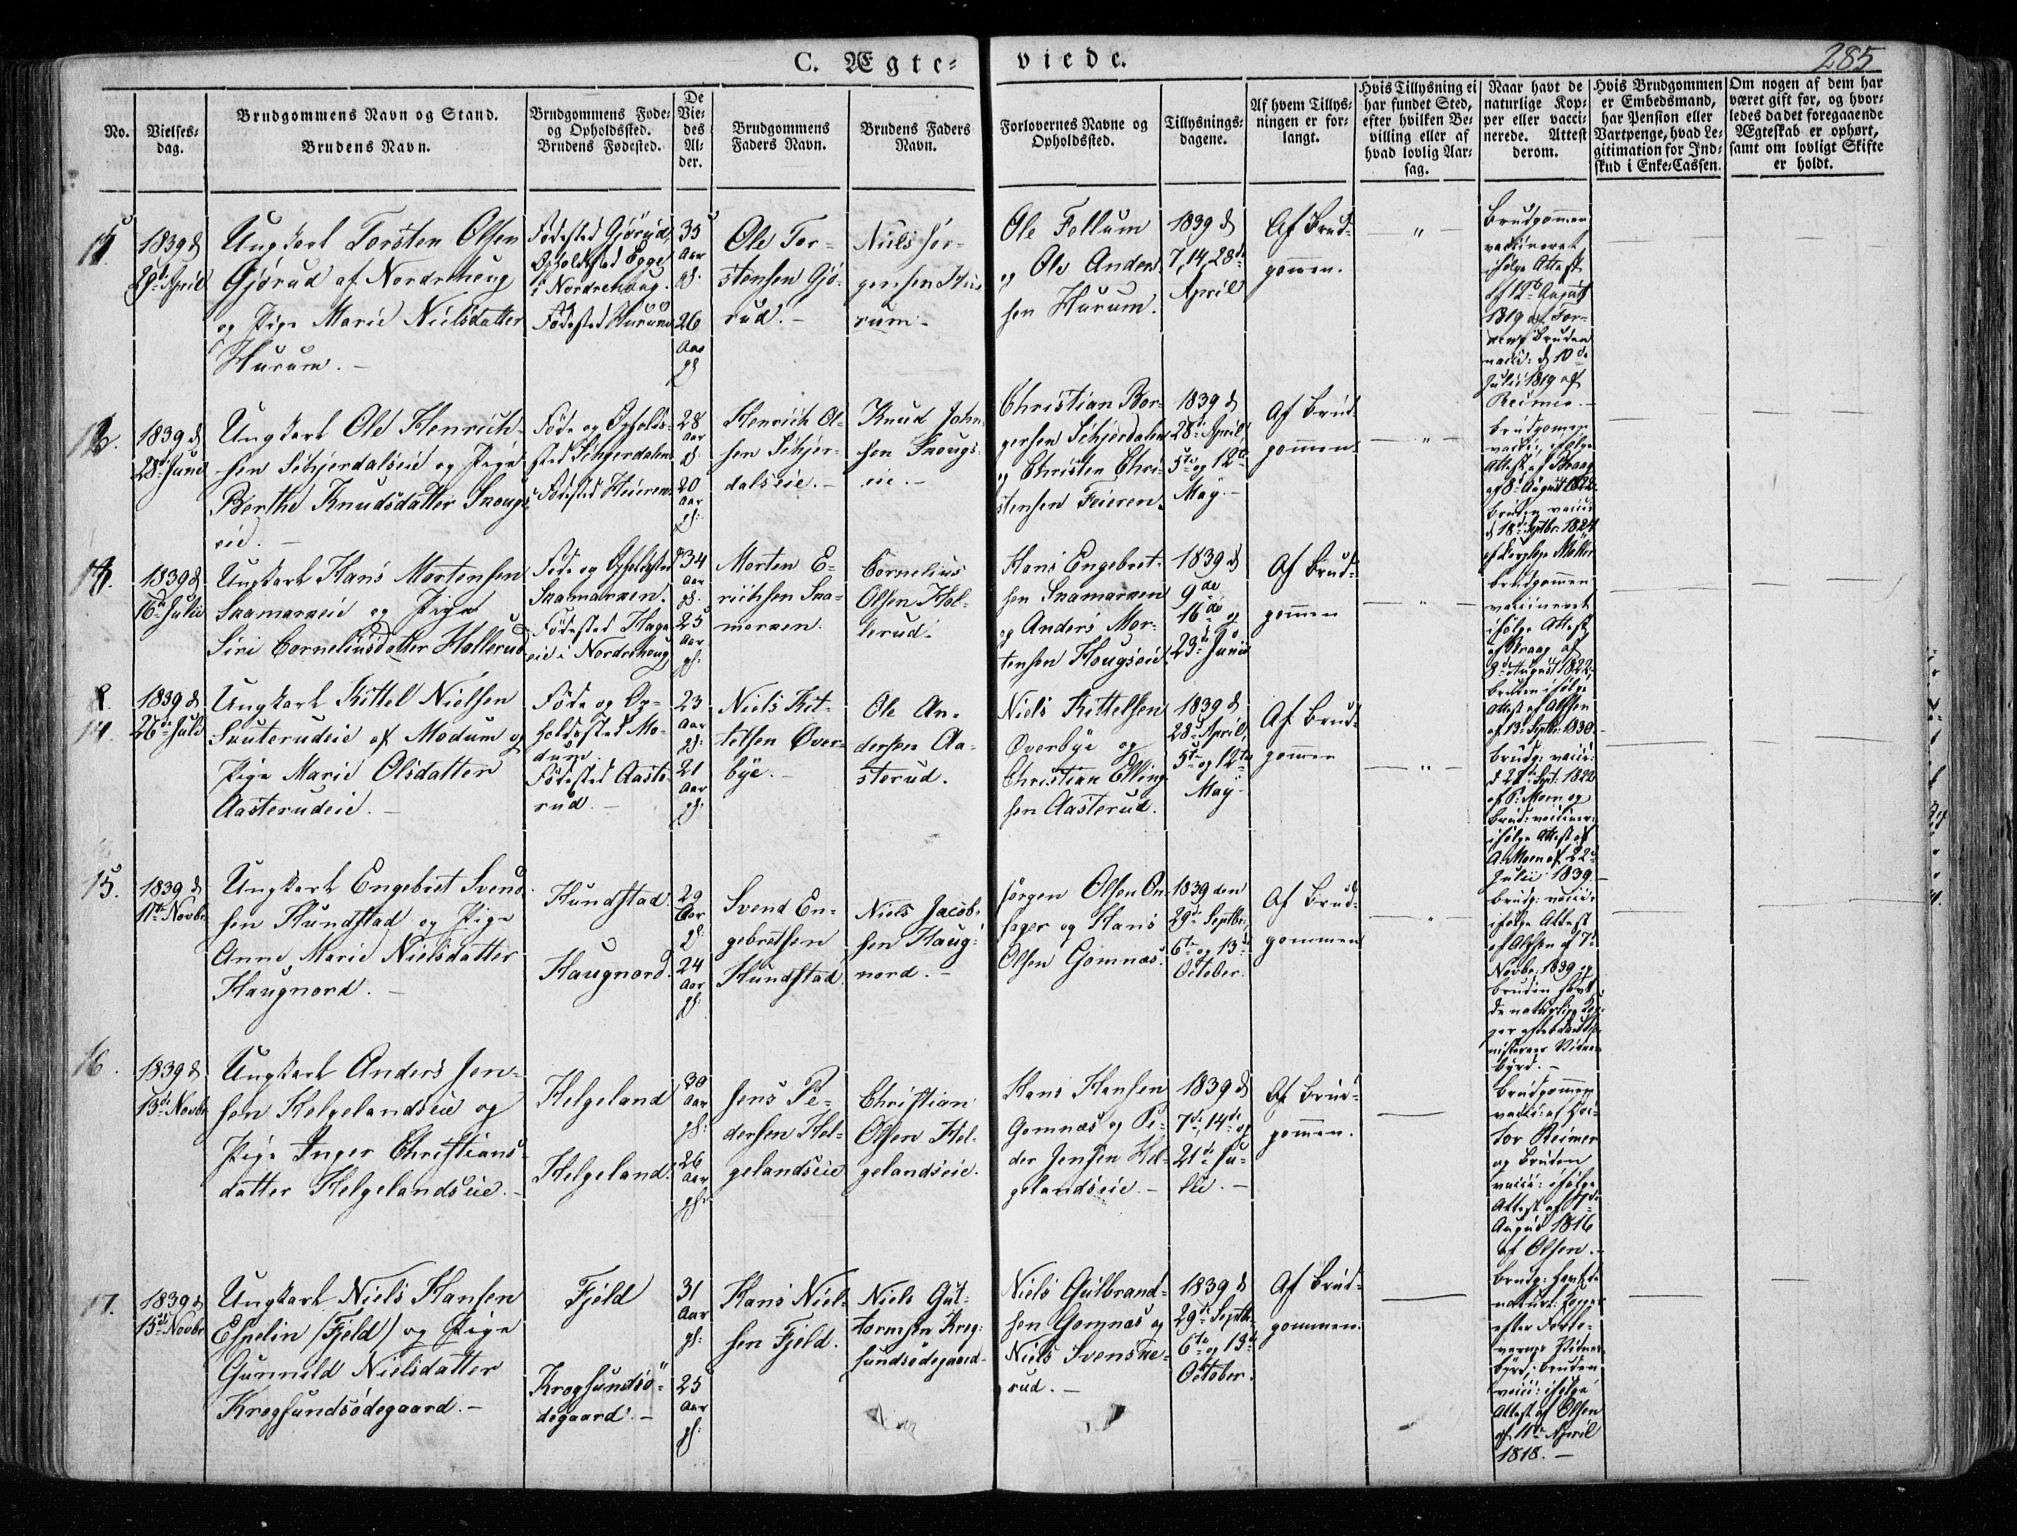 C. Ægte-viede.
285
No.
Vielses-
dag.
Brudgommens Navn og Stand.
Brudens Navn.
Brudgommens Føde-
og Opholdssted.
Brudens Fødested.
De
Vie-
des
Al-
der.
Brudgommens
Faders Navn.
Brudens Faders
Navn.
Forlovernes Navne og
Opholdssted.
Tillysnings-
dagene.
Af hvem Tillys-
ningen er for-
langt.
Hvis Tillysning ei
har fundet Sted,
efter hvilken Be-
villing eller af
hvad lovlig Aar-
sag.
Naar havt de
naturlige Kop-
per eller vacci-
nerede. Attest
derom.
Hvis Brudgommen
er Embedsmand,
har Pension eller
Vartpenge, hvad Le-
gitimation for Ind-
skud i Enke-Cassen.
Om nogen af dem har
været gift før, og hvor-
ledes da det foregaaende
Ægteskab er ophørt,
samt om lovligt Skifte
er holdt.
11.
1839 d
29de April
Ungkarl Torsten Olsen
Gjørud af Nordrehoug
og Pige Marie Nielsdatter
Hurum. –
Fødested Gjørud,
Opholdsted Egge
i Nordrehoug.
Fødested Hurum
35
Aar
gl.
26
Aar
gl
Ole Tor-
stensen Gjø-
rud. –
Niels Jør-
gensen Hu-
rum –
Ole Follum
og Ole Ander-
sen Hurum.
1839 d
7, 14, 28de
April
Af Brud-
gommen.
Brudgommen
vaccineret
ifølge Attest
af 12te August
1819 af
Bruden
vacci: d 10de
Julii 1819 af
Reimer. –
12.
1839 d
28de Juni
Ungkarl Ole Henrich-
sen Schjerdalseie og Pige
Berthe Knudsdatter Snougs
eie. –
Føde og Opholds-
sted Schjerdalen
Fødested Heieren
28
Aar
gl.
20
Aar
gl:
Henrich Ol-
sen Schjer-
dalseie. –
Knud John-
sen Snougs-
eie. –
Christian Bor-
gersen Schjerdalen
og Christen Chri-
stensen Feieren.
1839 d
28de April,
5te og 12te
May. –
Af Brud-
gommen.
Brudgommen
vacci: ifølge
Attest af Braag
af 8de August 1822.
Bruden vacci:
d 18de Septbr: 1824
13.
1839 d
16de Julii
Ungkarl Hans Mortensen
Snamarneie og Pige
Siri Corneliusdatter Hollerud
Føde og Opholdsted
Snamarnen.
Fødested Hage
eie i Nordrehoug
34
Aar
gl.
25
Aar
gl:
Morten E-
richsen Sna-
marnen.
Cornelius
Olsen Hol-
lerud.
Hans Engebret-
sen Snamarnen
og Anders Mor-
tensen Hougseie.
1839 d
9de
16de og
23de Junii
Af Brud-
gommen
Brudgommen
vaccineret
ifølge Attest
af Braag af
9de August 1822.
Bruden ifølge
Attest af Olssen
af 13de Septbr: 1830.
8.
14.
1839 d
26de Juli
Ungkarl Kittel Nielsen
Snuterudeie af Modum og
Pige Marie Olsdatter
Aasterudeie. –
Føde og Op-
holdssted Mo-
dum.
Fødested Aaste-
rud. –
23
Aar
gl:
21
Aar
gl:
Niels Kit-
telsen Øver-
bye. –
Ole An-
dersen Aa-
sterud.
Niels Kittelsen
Øverbye og
Christian Elling-
sen Aasterud.
1839 d
28de April,
5te og 12te
May.
Af Brud-
gommen
Brudg: vacci:
d 28de Sept: 1822
af P: Moen og
Brud: vacciner:
ifølge Attest af
A. Moen af 22de
Julii 1839. –
15.
1839 d
11te Novbr
Ungkarl Engebret Svend-
sen Hundstad og Pige
Anne Marie Nielsdatter
Haugnord. –
Hundstad.
Haugnord.
29
Aar
gl.
24
Aar
gl.
Svend En-
gebretsen
Hundstad.
Niels Jacob-
sen Haug-
nord. –
Jørgen Olsen On-
sager og Hans
Olsen Gomnæs.
1839 den
29de Septbr:
6te og 13de
October.
Af Brud-
gommen
Brudg: vacci:
ifølge Attest
af Olssen af 7de
Novbr: 1839 og
Bruden havt
de naturlige Kop-
per
Vidnes-
byrd. –
16.
1839 d
13de Novbr
Ungkarl Anders Jen-
sen Helgelandseie og
Pige Inger Christians-
datter Helgelandseie. –
Helgeland
Helgeland.
30
Aar
gl:
26
Aar
gl:
Jens Pe-
dersen Hel-
gelandseie
Christian
Olsen Hel-
gelandseie.
Hans Hansen
Gomnæs og Pe-
der Jensen Hel-
gelandseie. –
1839 d
7de, 14de og
21de Ju-
lii. –
Af Brud-
gommen.
Brudgommen
vacci: af Doc-
tor Reimer
og Bruden
vacci: ifølge
Attest af 17de
August 1816
af Olsen. –
17.
1839 d
15de Novbr
Ungkarl Niels Hansen
Espelin (Fjeld) og Pige
Gunnild Nielsdatter
Krogsundsødegaard. –
Fjeld
Krogsundsø-
degaard. –
31
Aar
gl:
25
Aar
gl:
Hans Niel-
sen Fjeld.
Niels Gut-
tormsen Krog-
sundsødegaard –
Niels Gulbrand-
sen Gomnæs og
Niels Svenske-
rud. –
1839 d
29de Septbr
6te og 13de
October.
Af Brud-
gommen.
Brudg: havt de
naturl: Kopper
efter Forlo-
vernes Vidnes-
byrd; Bruden
vacci: ifølge
Attest af Olsen
af 11te April
1818. –